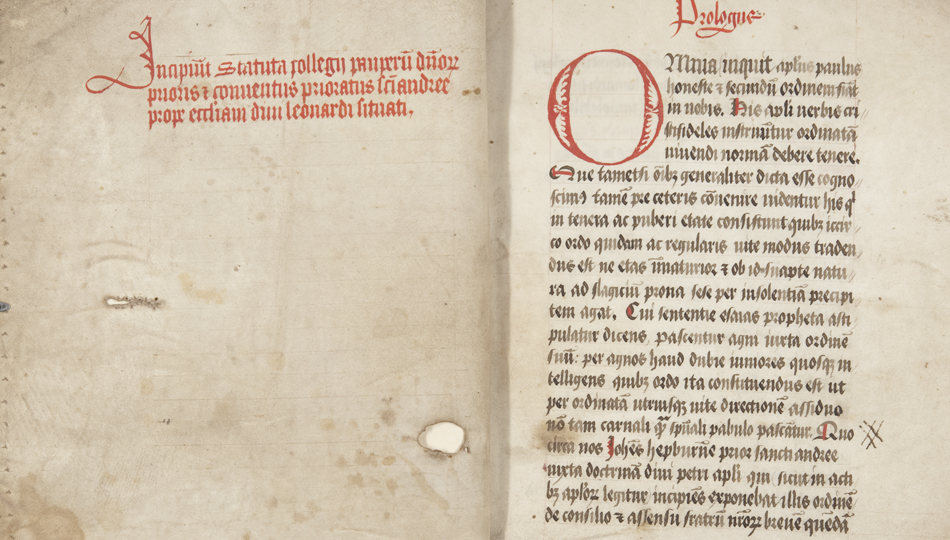 Incipiūt Statuta collegii paupeꝝ dn̄oꝝ
prioris ⁊ conuentus prioratus scī andree
prope eccliam diui leonardi situati.
Prologus
OMnia inquit aplus paulus
honeste ⁊ secundū ordinem fiāt
in nobis. His apli verbis cri
stifideles instruūtur ordinatā
uiuendi normā debere tenere.
Que tametsi oībꝫ generaliter dicta esse cogno
scimꝰ tamē pre ceteris cōuenire uidentur his q
in tenera ac puberi etate consistunt quibꝫ iccir
co ordo quidam ac regularis uite modus traden
dus est ne etas īmaturior ⁊ ob id suapte natu
ra ad flagiciū prona sese per insolentiā precipi
tem agat. Cui sententie esaias propheta asti
pulatur dicens pascentur agni iuxta ordinē
suū: per agnos haud dubie iuniores quosqꝫ in
telligens quibꝫ ordo ita constituendus est ut
per ordinatā utriusqꝫ uite directionē assiduo
nō tam carnali qꝫ spūali pabulo pascātur. Quo
circa nos Johēs hepburne prior sancti andree
iuxta doctrinā diui petri apli qui sicut in acti
bꝫ aplōꝝ legitur incipiēs exponebat illis ordinē
de consilio ⁊ assensu fratrū nr̄oꝝ breuē quēdā